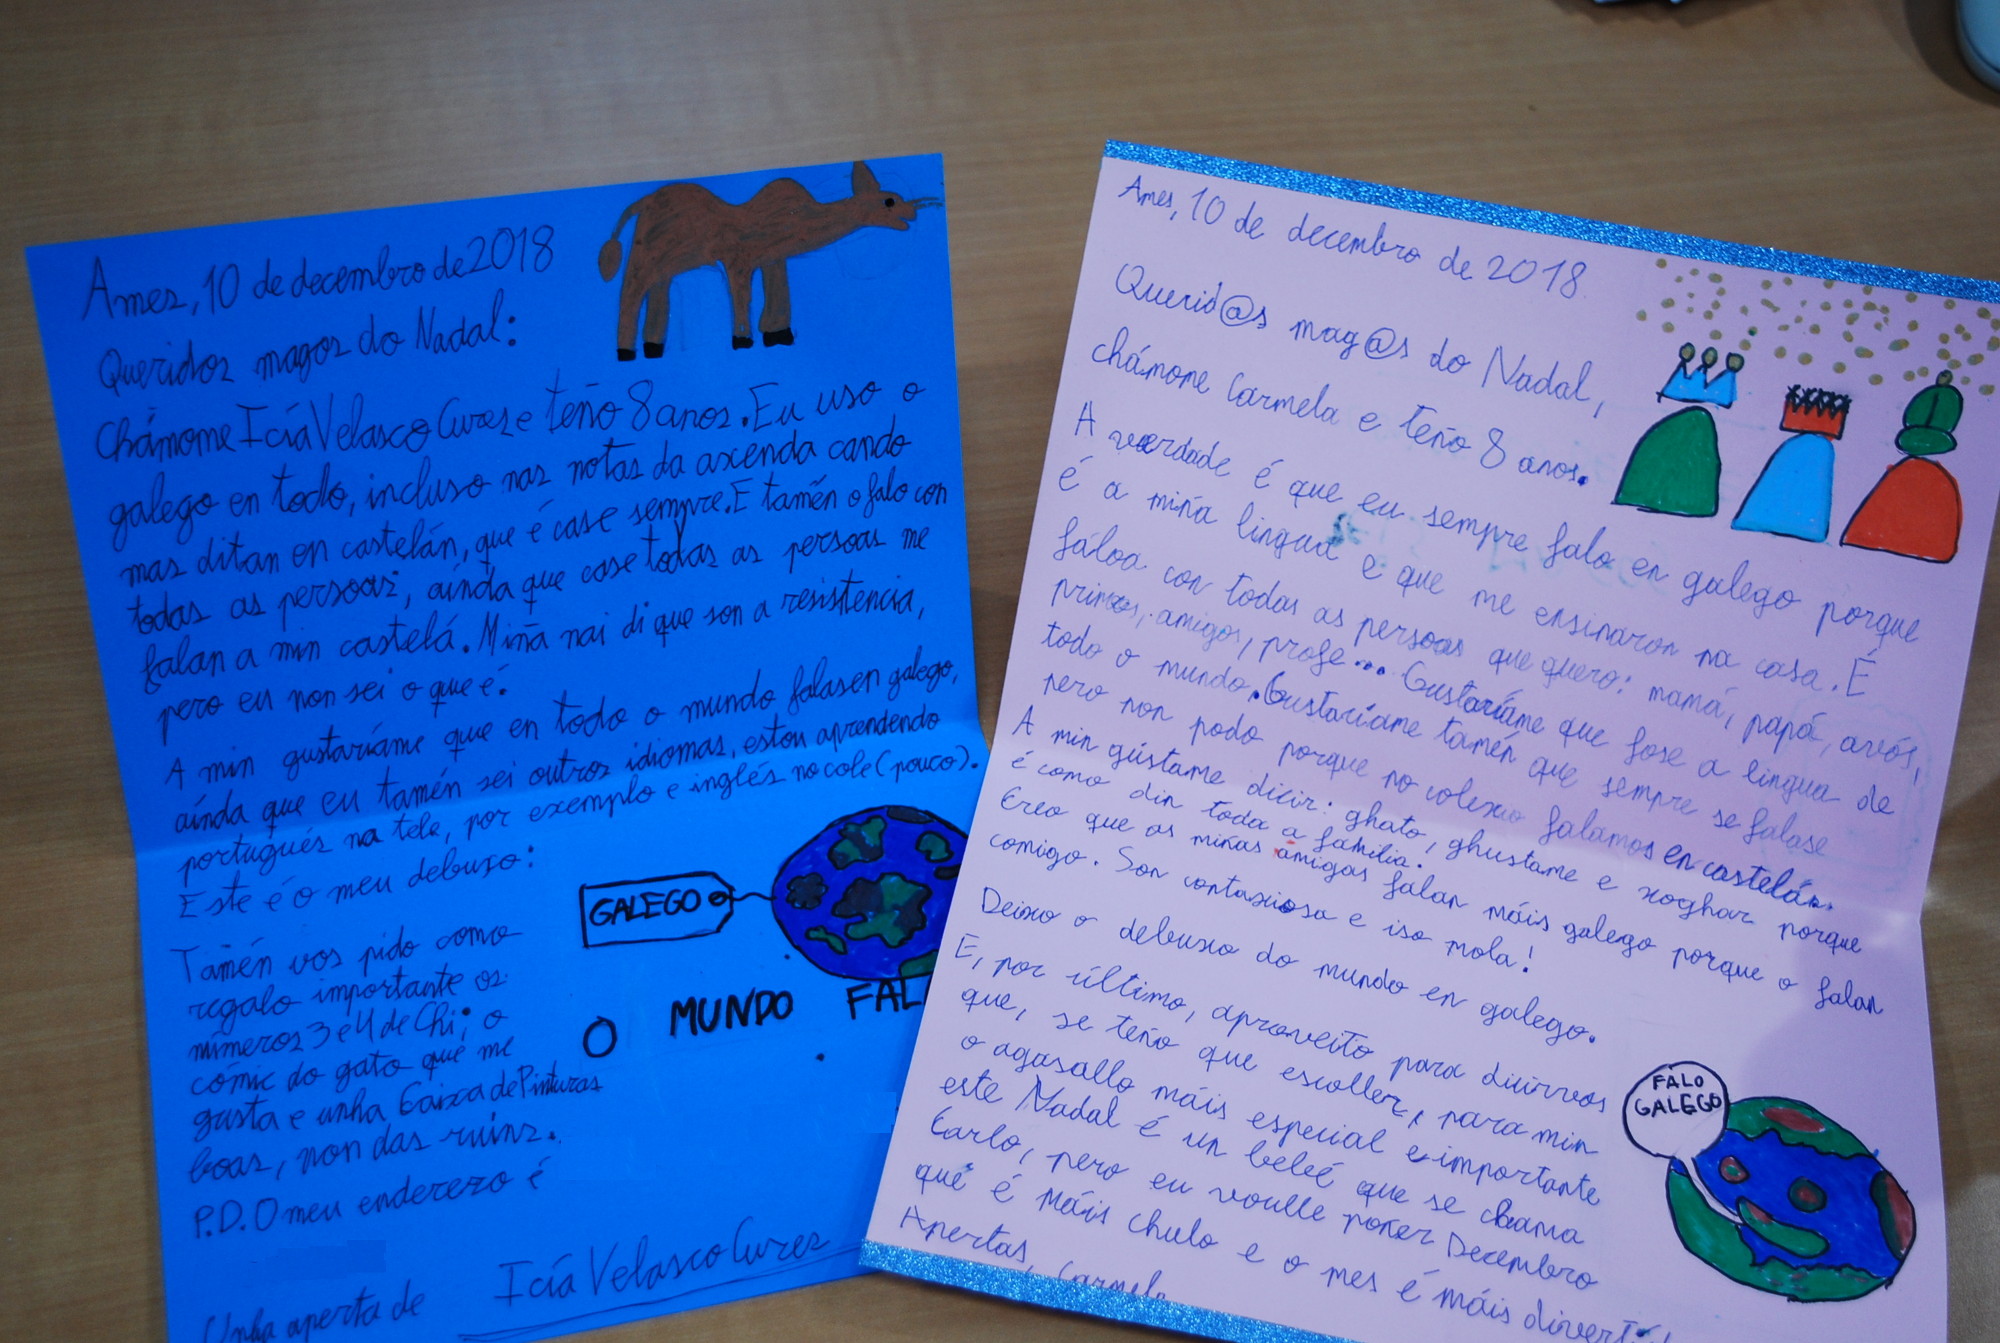 Ames, 10 de decembro de 2018
Queridos magos do Nadal:
Chámome Icía Velasco Cures e teño 8 anos. Eu uso o
galego en todo, incluso nas notas da axenda cando
mas ditan en castelán, que é case sempre. E tamén o falo con
todas as persoas, aínda que case todas as persoas me
falan a min castelá. Miña nai di que son a resistencia,
pero eu non sei o que é.
A min gustaríame que en todo o mundo falasen galego,
aínda que eu tamén sei outros idiomas, estou aprendendo
portugués na tele, por exemplo e inglés no cole (pouco).
Este é o meu debuxo:
GALEGO
O MUNDO FAL
Tamén vos pido como
regalo importante os
números 3 e 4 de Chi; o
cómic do gato que me
gusta e unha Caixa de Pinturas
boas, non das ruíns.
P.D. O meu enderezo é
Unha aperta de
Icía Velasco Cures
Ames, 10 de decembro de 2018
Querid@s mag@s do Nadal,
chámome Carmela e teño 8 anos.
A verdade é que eu sempre falo en galego porque
é a miña lingua e que me ensinaron na casa. É
fáloa con todas as persoas que quero: mamá, papá, avós,
primos, amigos, profe... Gustaríame que fose a lingua de
todo o mundo. Gustaríame tamén que sempre se falase
pero non podo porque no colexio falamos en castelán.
A min gústame dicir: ghato, ghustame e xoghar porque
é como din toda a familia.
Creo que as miñas amigas falan máis galego porque o falan
comigo. Son contaxiosa e iso mola!
Deixo o debuxo do mundo en galego.
E, por último, aproveito para dicirvos
que, se teño que escoller, para min
o agasallo máis especial e importante
este Nadal é un bebé que se chama
Carlo, pero eu voulle poñer Decembro
que é máis chulo e o mes é máis divertid
Apertas, Carmela
FALO
GALEGO